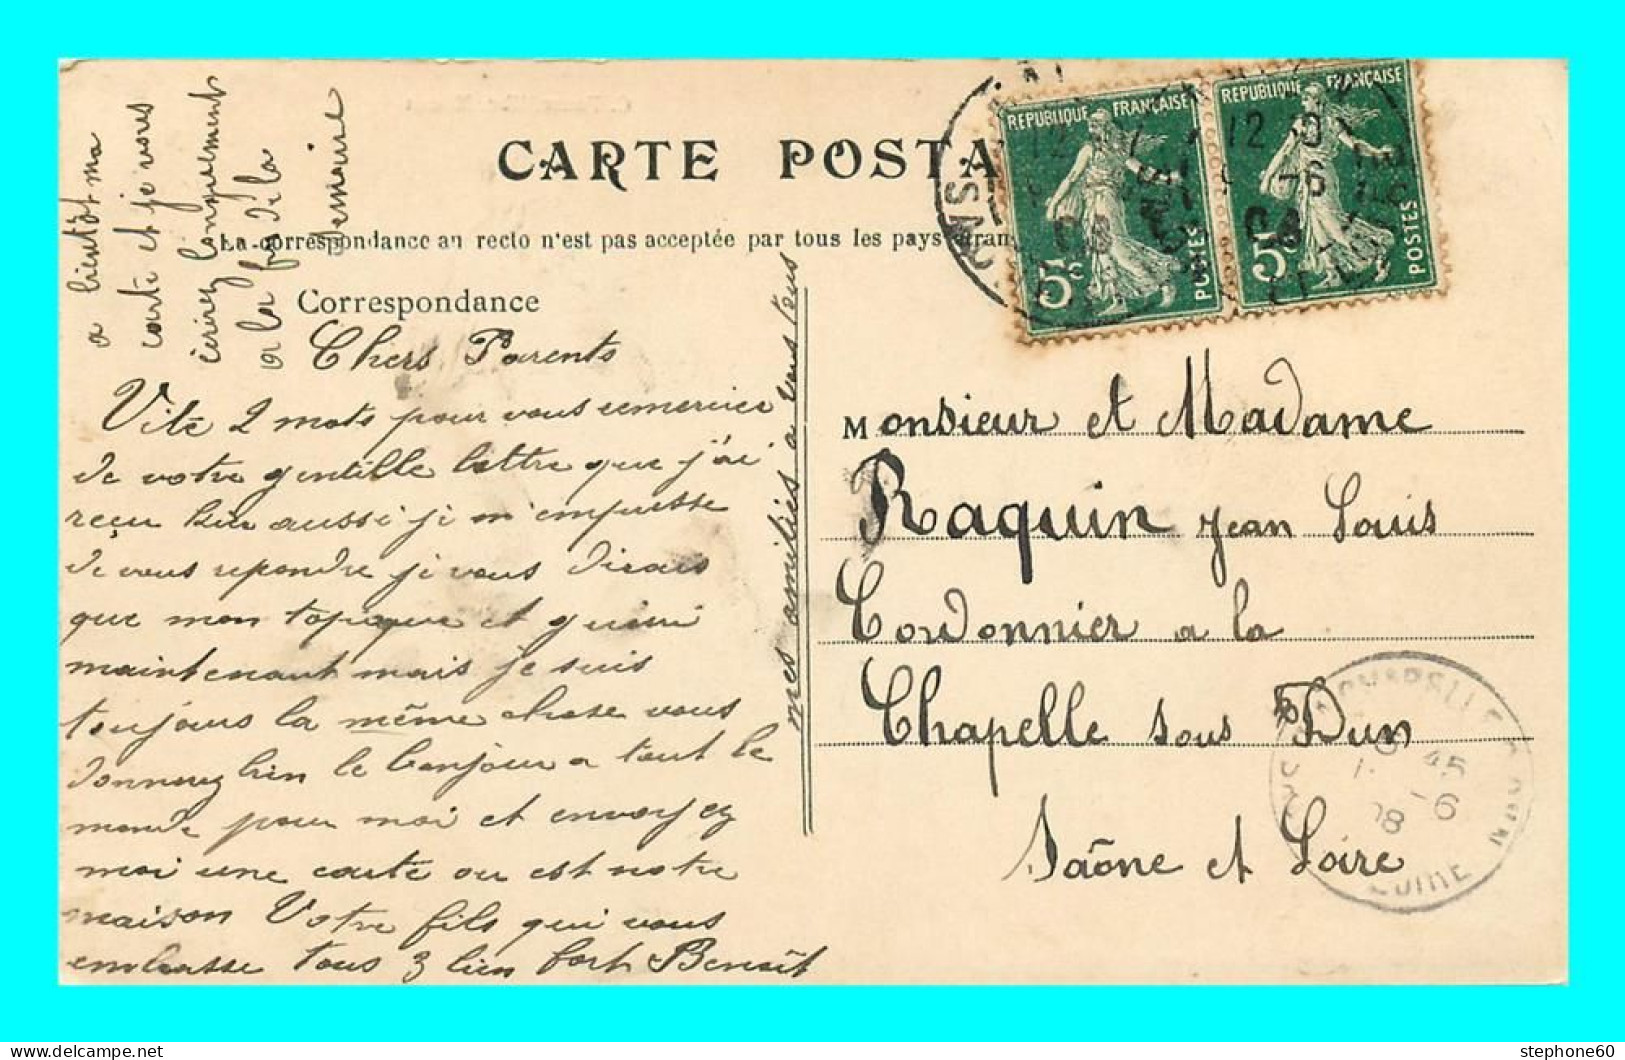 CARTE POSTA
La correspondance au recto n'est pas acceptée par tous les pays étran
Correspondance
Chers Parents
Vite 2 mots pour vous remercier
de votre gentille lettre que j'ai
reçu hier aussi je m'empresse
de vous repondre je vous dirais
que mon et guéri
maintenant mais je suis
toujours la même chose vous
donnerez bien le bonjour a tout le
monde pour moi et envoyez
moi une carte ou est notre
maison Votre fils qui vous
embrasse tous 3 bien fort Benoît
mes amitiés a vous tous
a bientôt ma
carte et je vous
écrirez longuement
a la fin de la
semaine
REPUBLIQUE FRANÇAISE
5c
POSTES
REPUBLIQUE FRANÇAISE
5c
POSTES
12
-6
08
Monsieur et Madame
Raquin Jean Louis
Cordonnier a la
Chapelle sous Dun
Saône et Loire
45
-6
08
LOIRE
stephone60